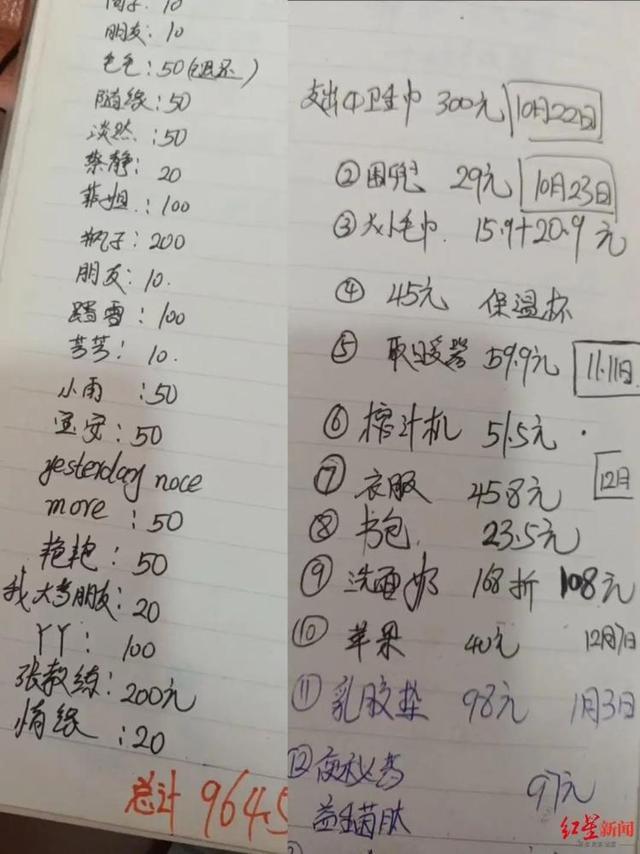 朋友：10
毛毛：50(已还)
随缘：50
淡然：50
蔡静：20
菲姐：100
瓶子：200
朋友：10.
踏雪：100
芳芳：10.
小雨：50
宜安：50
yesterday noce
more：50
艳艳：50
我大哥朋友：20
丫丫：100
张教练：200元
情缘：20
总计 9645
支出①卫生巾 300元 10月22日
②围兜 29元 10月23日
③大小毛巾. 15.9+20.9元
④ 45元 保温杯
⑤ 取暖器 59.9元 11.11日
⑥ 榨汁机 51.5元.
⑦ 衣服 458元 12月
⑧ 书包. 23.5元
⑨ 洗面奶 168折 108元
⑩ 苹果 40元 12月7日
⑪ 乳胶垫 98元 1月3日
⑫ 97元
益生菌肽
红星新闻